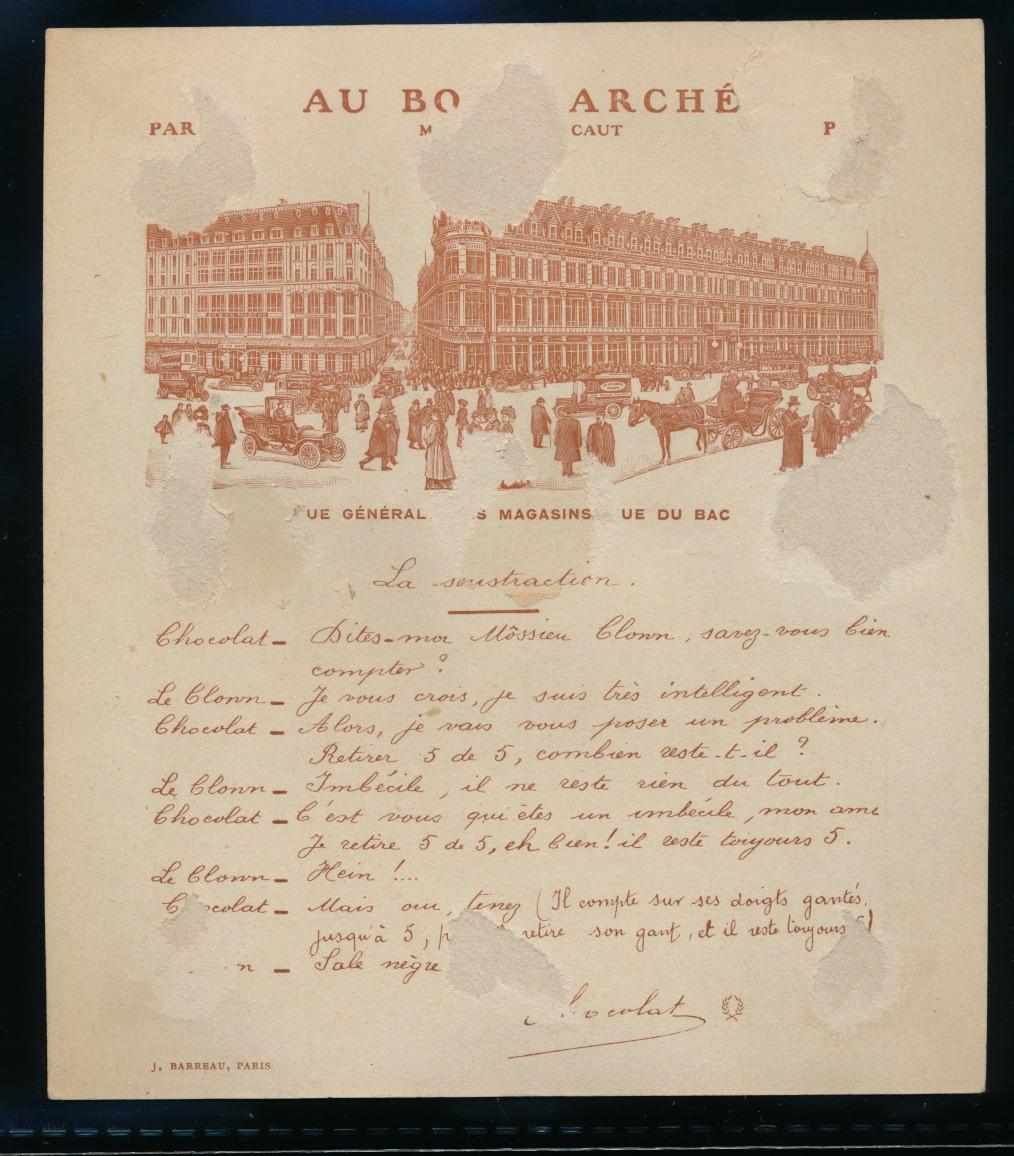 AU BO ARCHÉ
PAR M CAUT P
UE GÉNÉRAL S MAGASINS UE DU BAC
La soustraction.
Chocolat - Dites-moi Môssieu Clown, savez-vous bien
compter ?
Le Clown - Je vous crois, je suis très intelligent.
Chocolat - Alors, je vais vous poser un problème.
Retirer 5 de 5, combien reste-t-il ?
Le Clown - Imbécile, il ne reste rien du tout.
Chocolat - C'est vous qui êtes un imbécile, mon ami
Je retire 5 de 5, eh bien! il reste toujours 5.
Le Clown - Hein !...
C ocolat - Mais oui, tenez (Il compte sur ses doigts gantés,
jusqu'à 5, p retire son gant, et il reste toujours 5)
n - Sale nègre
hocolat
J. BARREAU, PARIS